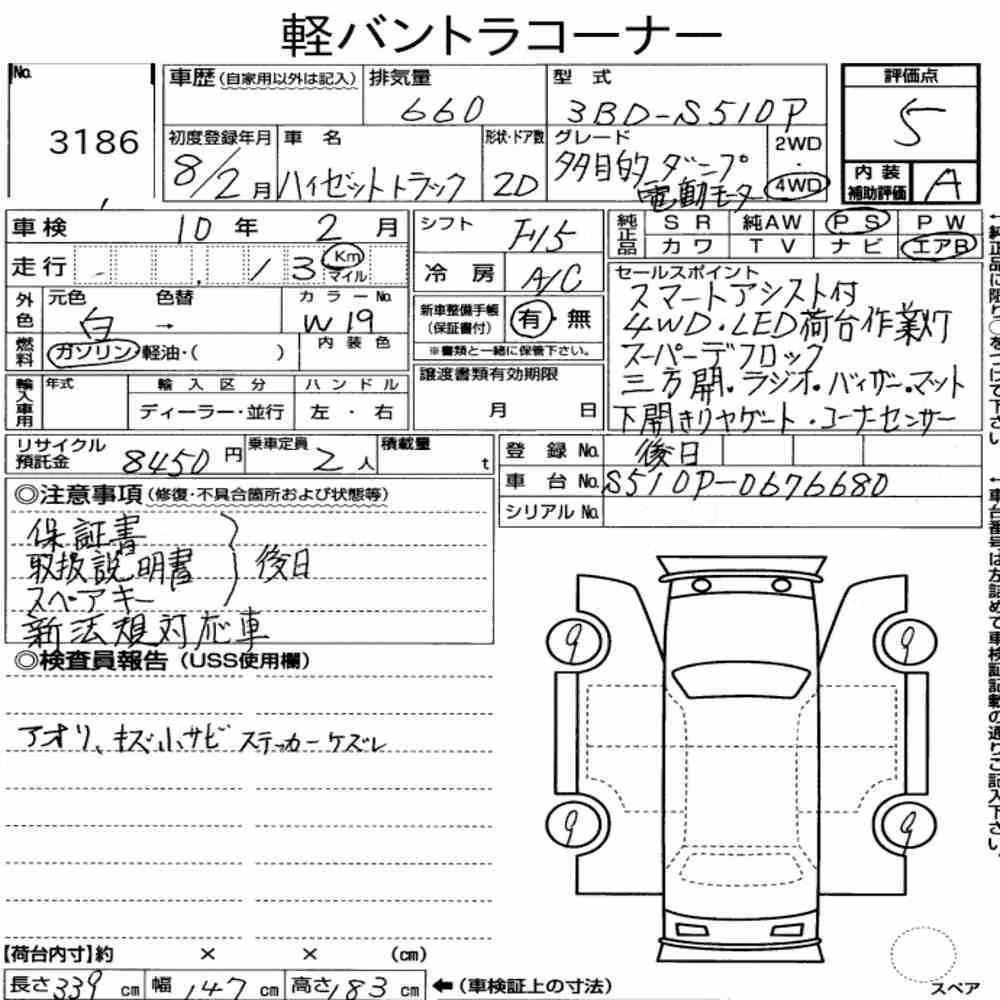 軽バントラコーナー
No.
3186
車歴(自家用以外は記入)
排気量
660
型式
3BD-S510P
評価点
5
初度登録年月
8/2月
車名
ハイゼットトラック
形状・ドア数
2D
グレード
多目的ダンプ
電動モータ
2WD
・
4WD
内装
補助評価
A
車検 10年 2月
シフト
F15
純正品
SR 純AW PS PW
カワ TV ナビ エアB
走行 13 Km
マイル
冷房
A/C
セールスポイント
スマートアシスト付
4WD・LED荷台作業灯
スーパーデフロック
三方開・ラジオ・バイザー・マット
下開きリヤゲート・コーナーセンサー
外色
元色 色替
白 →
カラーNo.
W19
内装色
新車整備手帳
(保証書付)
有・無
※書類と一緒に保管下さい。
燃料
ガソリン・軽油・( )
譲渡書類有効期限
月 日
輸入車用
年式
輸入区分
ディーラー・並行
ハンドル
左・右
リサイクル
預託金
8450円
乗車定員
2人
積載量
t
登録No.
後日
車台No.
S510P-0676680
シリアルNo.
◎注意事項(修復・不具合箇所および状態等)
保証書
取扱説明書
スペアキー
後日
新法規対応車
◎検査員報告(USS使用欄)
アオリ、キズ小サビ ステッカーケズレ
9
9
9
9
【荷台内寸】約 × × (cm)
長さ339cm 幅147cm 高さ183cm
←(車検証上の寸法)
スペア
←純正品に限り○をつけて下さい
←車台番号は左詰めで車検証記載の通りご記入下さい。